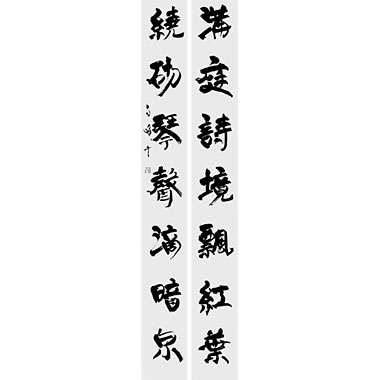 满庭詩境飄紅葉
繞砌琴聲滴暗泉